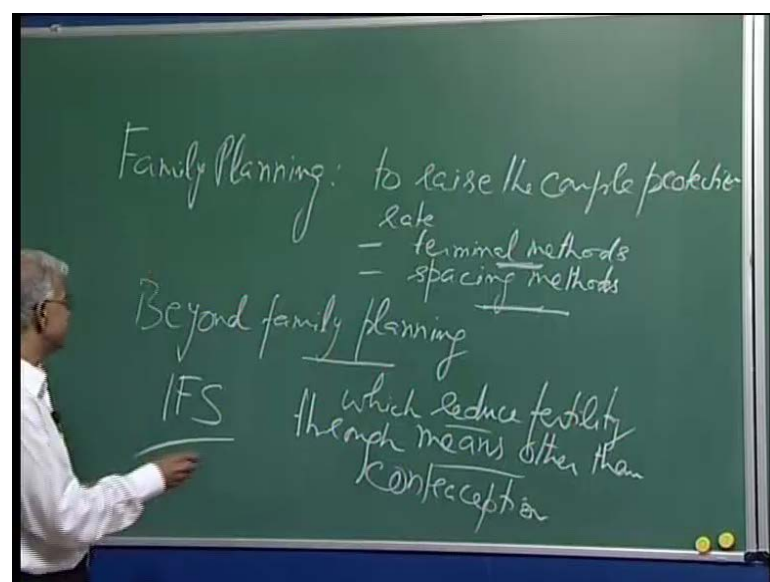 Family Planning: to raise the couple protection
rate
- terminal methods
- spacing methods
Beyond family planning
IFS
which reduce fertility
through means other than
contraception